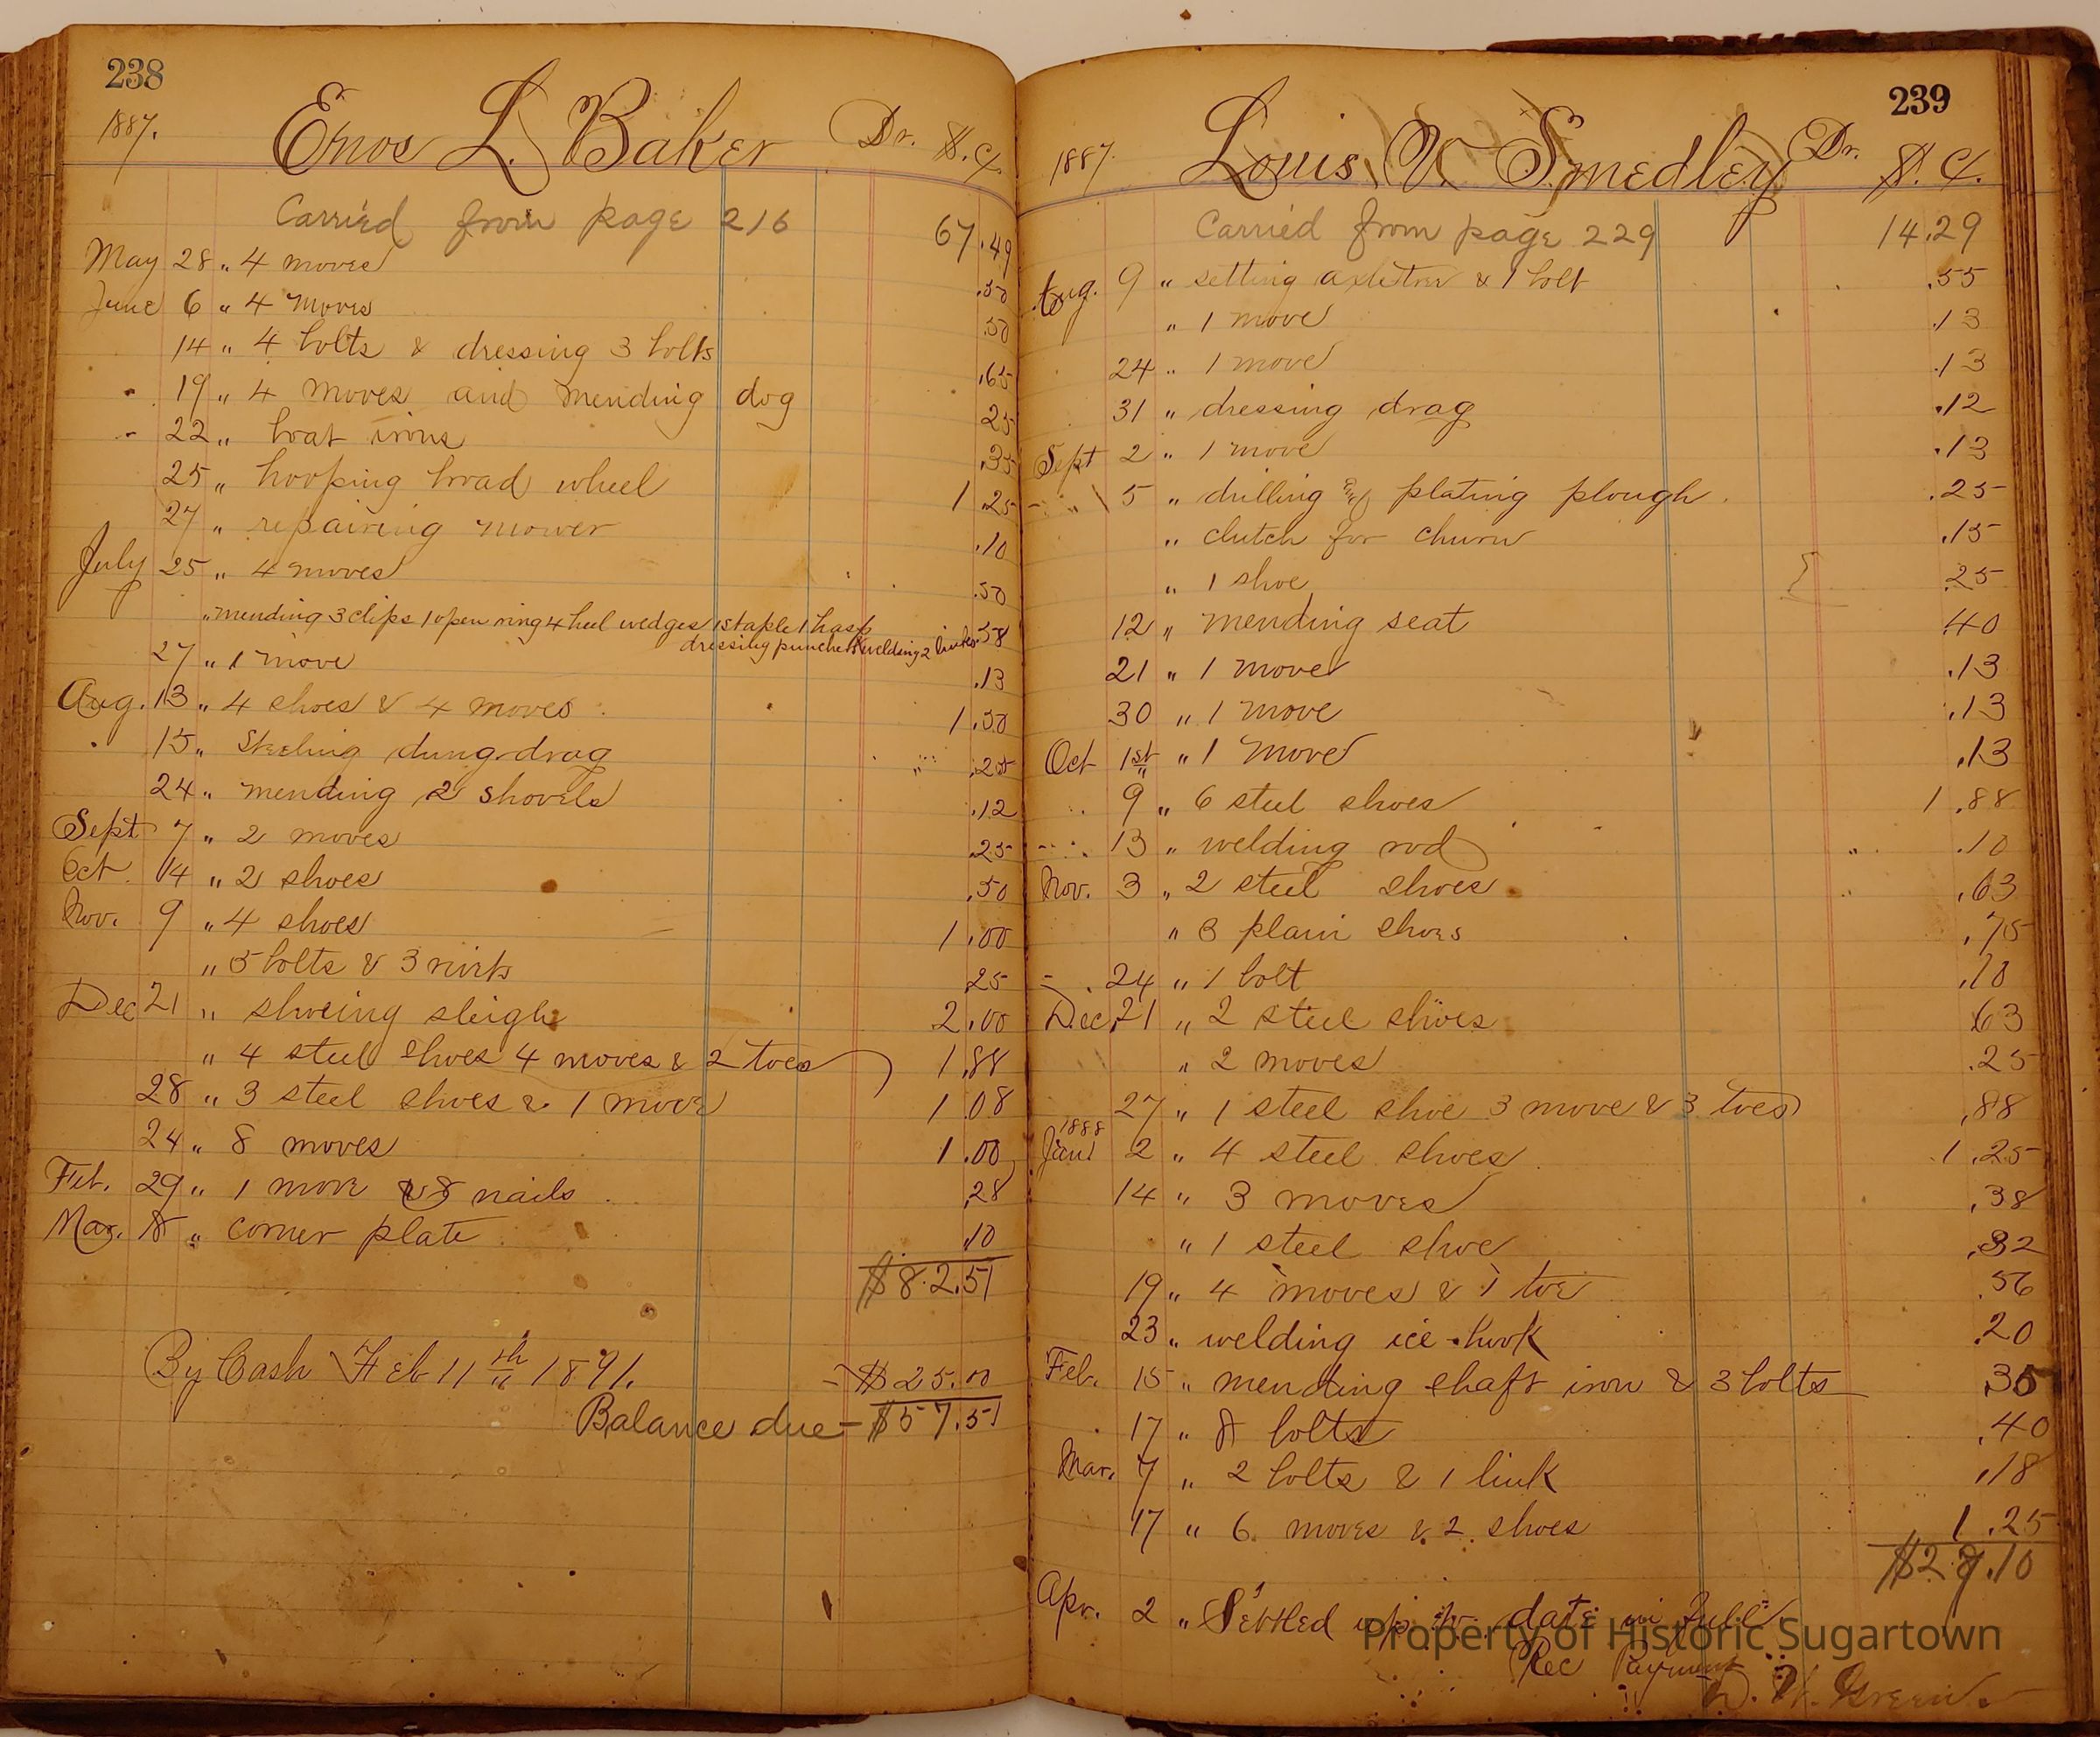 238
1887. Enos L. Baker Dr. $. ¢.
Carried from page 216 67.49
May 28 „ 4 moves .50
June 6 „ 4 moves .50
14 „ 4 bolts & dressing 3 bolts .65
19 „ 4 moves and mending dog 25
22 „ boat irons .35
25 „ hooping broad wheel 1.25
27 „ repairing mower .10
July 25 „ 4 moves .50
„ mending 3 clips 1 open ring 4 heel wedges 1 staple 1 hasp
dressing punchers & welding 2 links .58
27 „ 1 move .13
Aug. 13 „ 4 shoes & 4 moves 1.50
15 „ Steeling dung-drag .25
24 „ mending 2 shovels .12
Sept 7 „ 2 moves .25
Oct. 14 „ 2 shoes .50
Nov. 9 „ 4 shoes 1.00
„ 5 bolts & 3 .25
Dec 21 „ shoeing sleigh 2.00
„ 4 steel shoes 4 moves & 2 toes 1.88
28 „ 3 steel shoes & 1 move 1 08
24 „ 8 moves 1.00
Feb. 29 „ 1 move & 8 nails .28
Mar. 8 „ corner plate .10
$82.51
By Cash Feb 11th 1891. - $25.00
Balance due - $57.51
239
1887. Louis V. Smedley Dr. $. ¢.
Carried from page 229 14.29
Aug. 9 „ setting axletree & 1 bolt .55
„ 1 move .13
24 „ 1 move .13
31 „ dressing drag .12
Sept 2 „ 1 move .13
5 „ drilling & plating plough. .25
„ clutch for churn .15
„ 1 shoe 25
12 „ mending seat .40
21 „ 1 move .13
30 „ 1 move .13
Oct 1st „ 1 move .13
9 „ 6 steel shoes 1.88
13 „ welding rod .10
Nov. 3 „ 2 steel shoes .63
„ 3 plain shoes .75
24 „ 1 bolt .10
Dec. 21 „ 2 steel shoes .63
„ 2 moves .25
27 „ 1 steel shoe 3 move & 3 toes .88
1888
Jan 2 „ 4 steel shoes 1.25
14 „ 3 moves .38
„ 1 steel shoe .32
19 „ 4 moves & 1 toe .56
23 „ welding ice-hook .20
Feb. 15 „ mending shaft iron & 3 bolts 35
17 „ 8 bolts .40
Mar. 7 „ 2 bolts & 1 link .18
17 „ 6 moves & 2 shoes 1.25
Apr. 2 „ Settled up to date in full
Rec Payment
Green
Property of Historic Sugartown